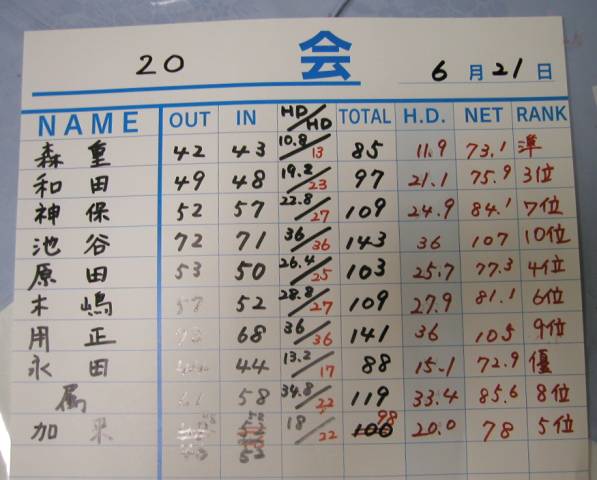 20 会 6月21日
NAME OUT IN HD/HD TOTAL H.D. NET RANK
森 重 42 43 10.8/13 85 11.9 73.1 準
和 田 49 48 19.2/23 97 21.1 75.9 3位
神 保 52 57 22.8/27 109 24.9 84.1 7位
池 谷 72 71 36/36 143 36 107 10位
原 田 53 50 26.4/25 103 25.7 77.3 4位
木 嶋 57 52 28.8/27 109 27.9 81.1 6位
用 正 73 68 36/36 141 36 105 9位
永 田 44 13.2/17 88 15.1 72.9 優
属 61 58 34.8/32 119 33.4 85.6 8位
加 来 18/22 100 98 20.0 78 5位
52